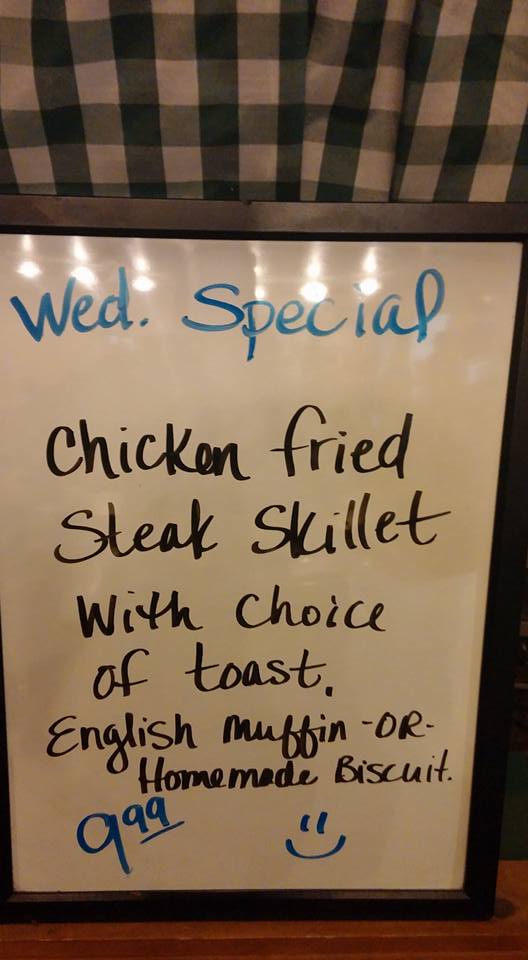 Wed. Special
Chicken fried
Steak Skillet
With Choice
of toast.
English muffin -OR-
Homemade Biscuit.
9.99